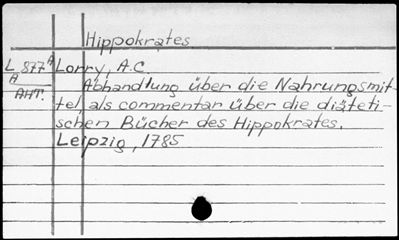 Hippokrates
L 877ᴬ Lorry, A.C.
A Abhandlung über die Nahrungsmit-
AHT. tel als commentar über die diäteti-
schen Bücher des Hippokrates.
Leipzig, 1785